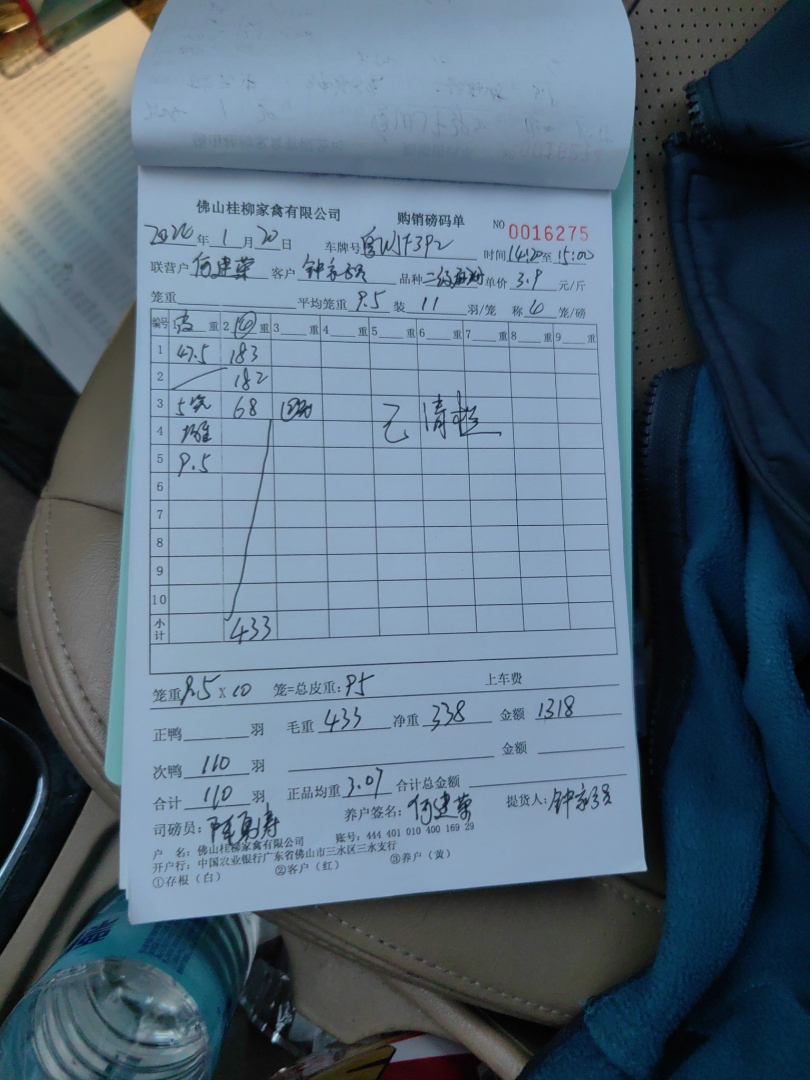 佛山桂柳家禽有限公司 购销磅码单 NO 0016275
年 1 月 20 日 车牌号 时间 14:20 至 15:00
联营户 何建荣 客户 钟 品种 二级 单价 3.9 元/斤
笼重 平均笼重 9.5 装 11 羽/笼 称 6 笼/磅
编号 1 皮 重 2 重 3 重 4 重 5 重 6 重 7 重 8 重 9 重
1 47.5 183
2 182
3 5笼 68 已清栏
4
5 9.5
6
7
8
9
10
小计 433
笼重 9.5 x 10 笼=总皮重: 95 上车费
正鸭 羽 毛重 433 净重 338 金额 1318
次鸭 110 羽 金额
合计 110 羽 正品均重 3.07 合计总金额
司磅员: 养户签名: 何建荣 提货人: 钟
户 名: 佛山桂柳家禽有限公司 账号: 444 401 010 400 169 29
开户行: 中国农业银行广东省佛山市三水区三水支行
①存根(白) ②客户(红) ③养户(黄)